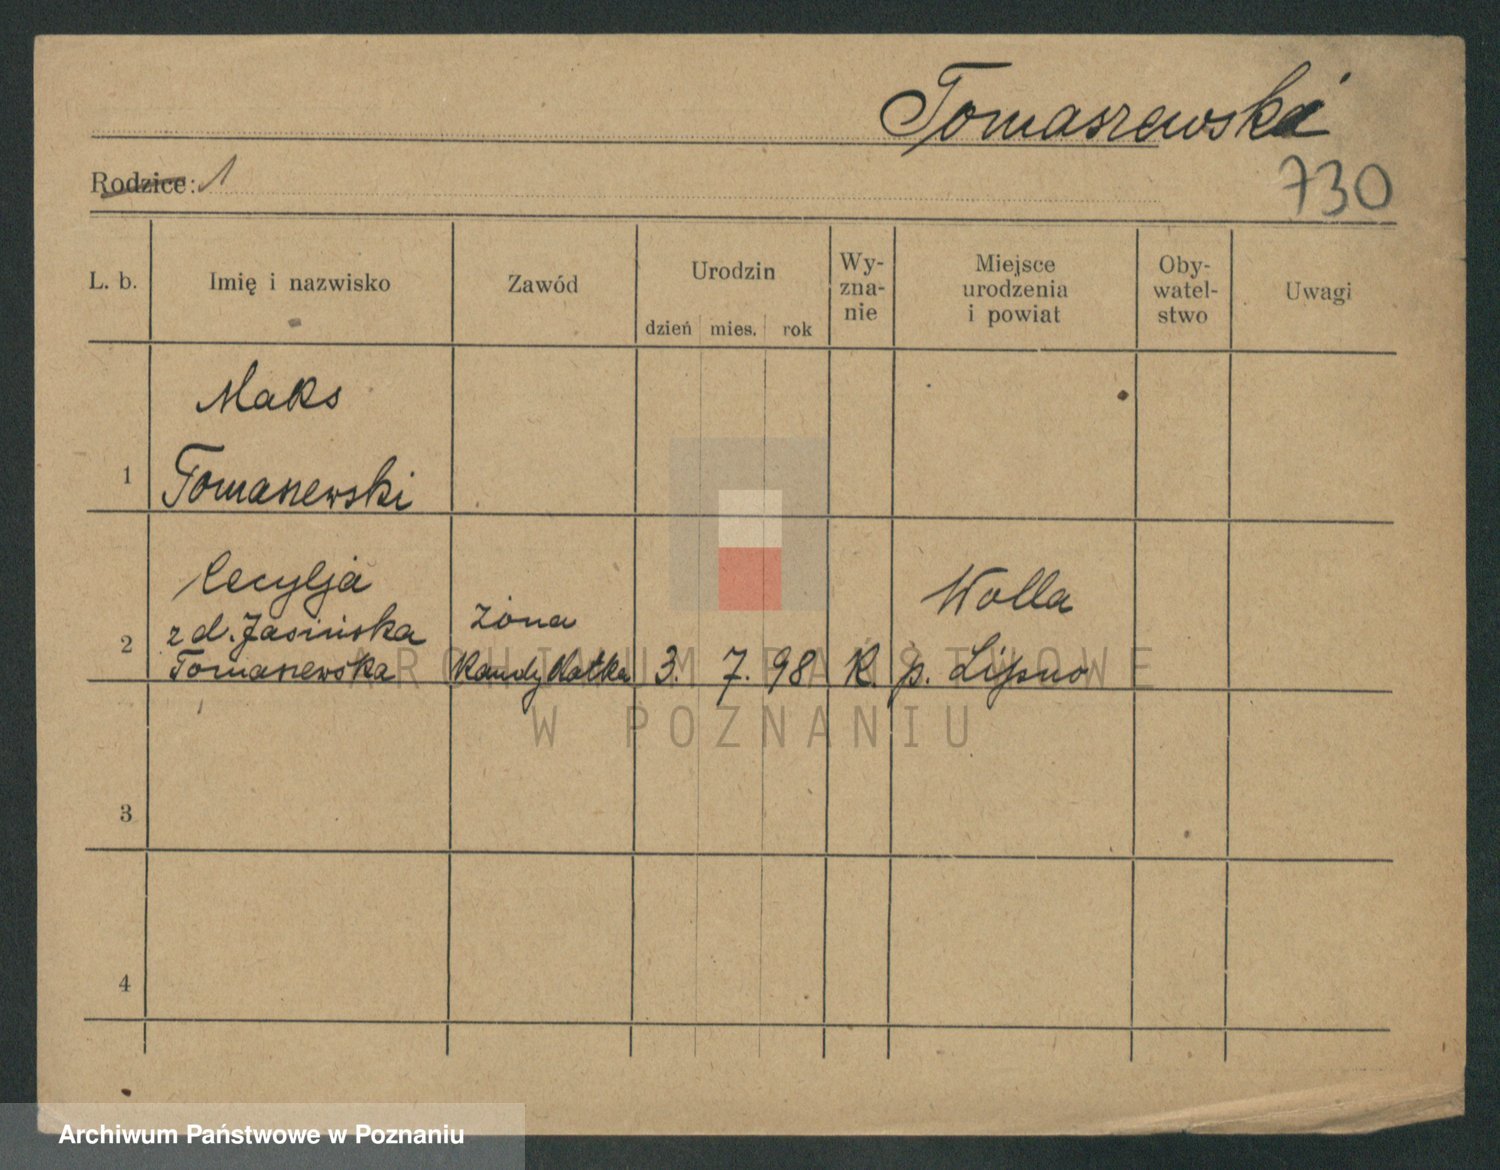 Tomaszewska
Rodzice: 1
730
L. b. Imię i nazwisko Zawód Urodzin Wy-
zna-
nie Miejsce
urodzenia
i powiat Oby-
watel-
stwo Uwagi
dzień mies. rok
Maks
1 Tomaszewski
Cecylja
z d. Jasińska żona Wolla
2 Tomaszewska 3. 7. 98 K. p. Lipno
ARCHIWUM PAŃSTWOWE
W POZNANIU
3
4
Archiwum Państwowe w Poznaniu